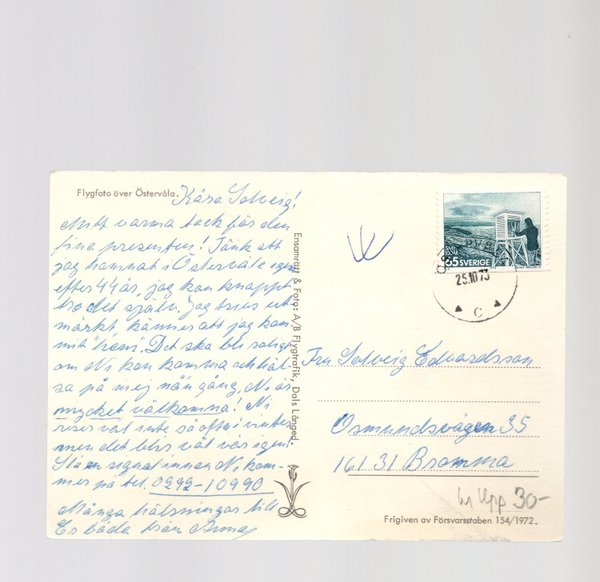 Flygfoto över Östervåla.
Kära Solveig!
Mitt varma tack för den
fina presenten! Tänk att
jag hamnat i Östervåla igen
efter 44 år, jag kan knappt
tro det själv. Jag trivs ut-
märkt, känner att jag kom-
mit "hem". Det ska bli roligt
om Ni kan komma och häl-
sa på mej nån gång. Ni är
mycket välkomna! Ni
reser väl inte så ofta i vinter
men det blir väl vår igen.
Slå en signal innan Ni kom-
mer på tel. 0292-10990
Många hälsningar till
Er båda från
Ensamrätt & Foto: A/B Flygtrafik, Dals Långed.
65 SVERIGE
25.10.73
C
Fru Solveig Edvardsson
Osmundsvägen 35
161 31 Bromma
Upp 30-
Frigiven av Försvarsstaben 154/1972.